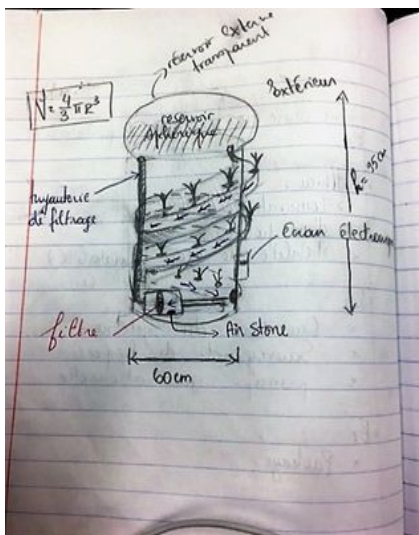 réservoir externe
transparent
V = 4/3 π R³
extérieur
reservoir
sphérique
h = 35 cm
tuyauterie
de filtrage
Ecran électronique
filtre
Air Stone
60 cm